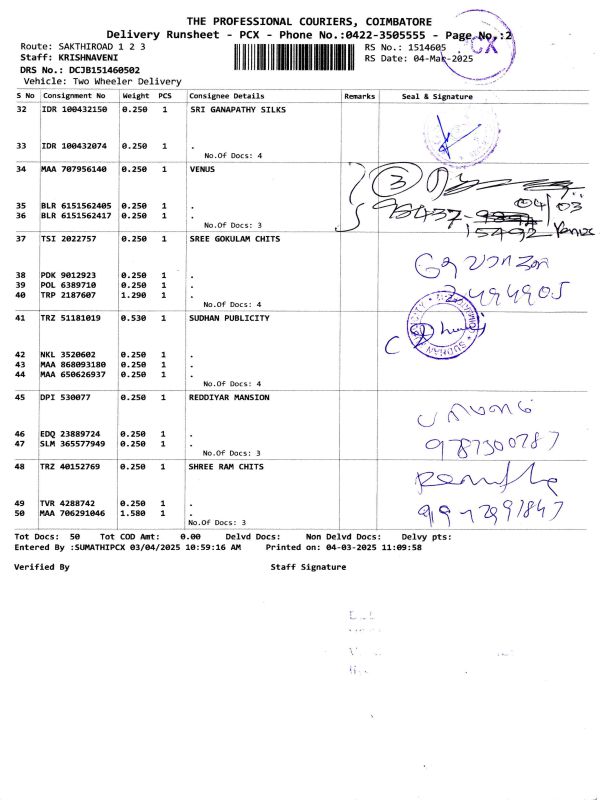 THE PROFESSIONAL COURIERS, COIMBATORE
Delivery Runsheet - PCX - Phone No.:0422-3505555 - Page No.:2
Route: SAKTHIROAD 1 2 3 RS No.: 1514605
Staff: KRISHNAVENI RS Date: 04-Mar-2025
DRS No.: DCJB151460502
Vehicle: Two Wheeler Delivery
S No Consignment No Weight PCS Consignee Details Remarks Seal & Signature
32 IDR 100432150 0.250 1 SRI GANAPATHY SILKS
33 IDR 100432074 0.250 1 .
No.Of Docs: 4
34 MAA 707956140 0.250 1 VENUS
3
04/03
35 BLR 6151562405 0.250 1 .
36 BLR 6151562417 0.250 1 .
95437
No.Of Docs: 3
15492 Venus
37 TSI 2022757 0.250 1 SREE GOKULAM CHITS
38 PDK 9012923 0.250 1 .
39 POL 6389710 0.250 1 .
40 TRP 2187607 1.290 1 .
2494905
No.Of Docs: 4
41 TRZ 51181019 0.530 1 SUDHAN PUBLICITY
SUDHAN
42 NKL 3520602 0.250 1 .
43 MAA 868093180 0.250 1 .
44 MAA 650626937 0.250 1 .
No.Of Docs: 4
45 DPI 530077 0.250 1 REDDIYAR MANSION
46 EDQ 23889724 0.250 1 .
47 SLM 365577949 0.250 1 .
9787300787
No.Of Docs: 3
48 TRZ 40152769 0.250 1 SHREE RAM CHITS
49 TVR 4288742 0.250 1 .
50 MAA 706291046 1.580 1 .
No.Of Docs: 3
Tot Docs: 50 Tot COD Amt: 0.00 Delvd Docs: Non Delvd Docs: Delvy pts:
Entered By :SUMATHIPCX 03/04/2025 10:59:16 AM Printed on: 04-03-2025 11:09:58
Verified By Staff Signature